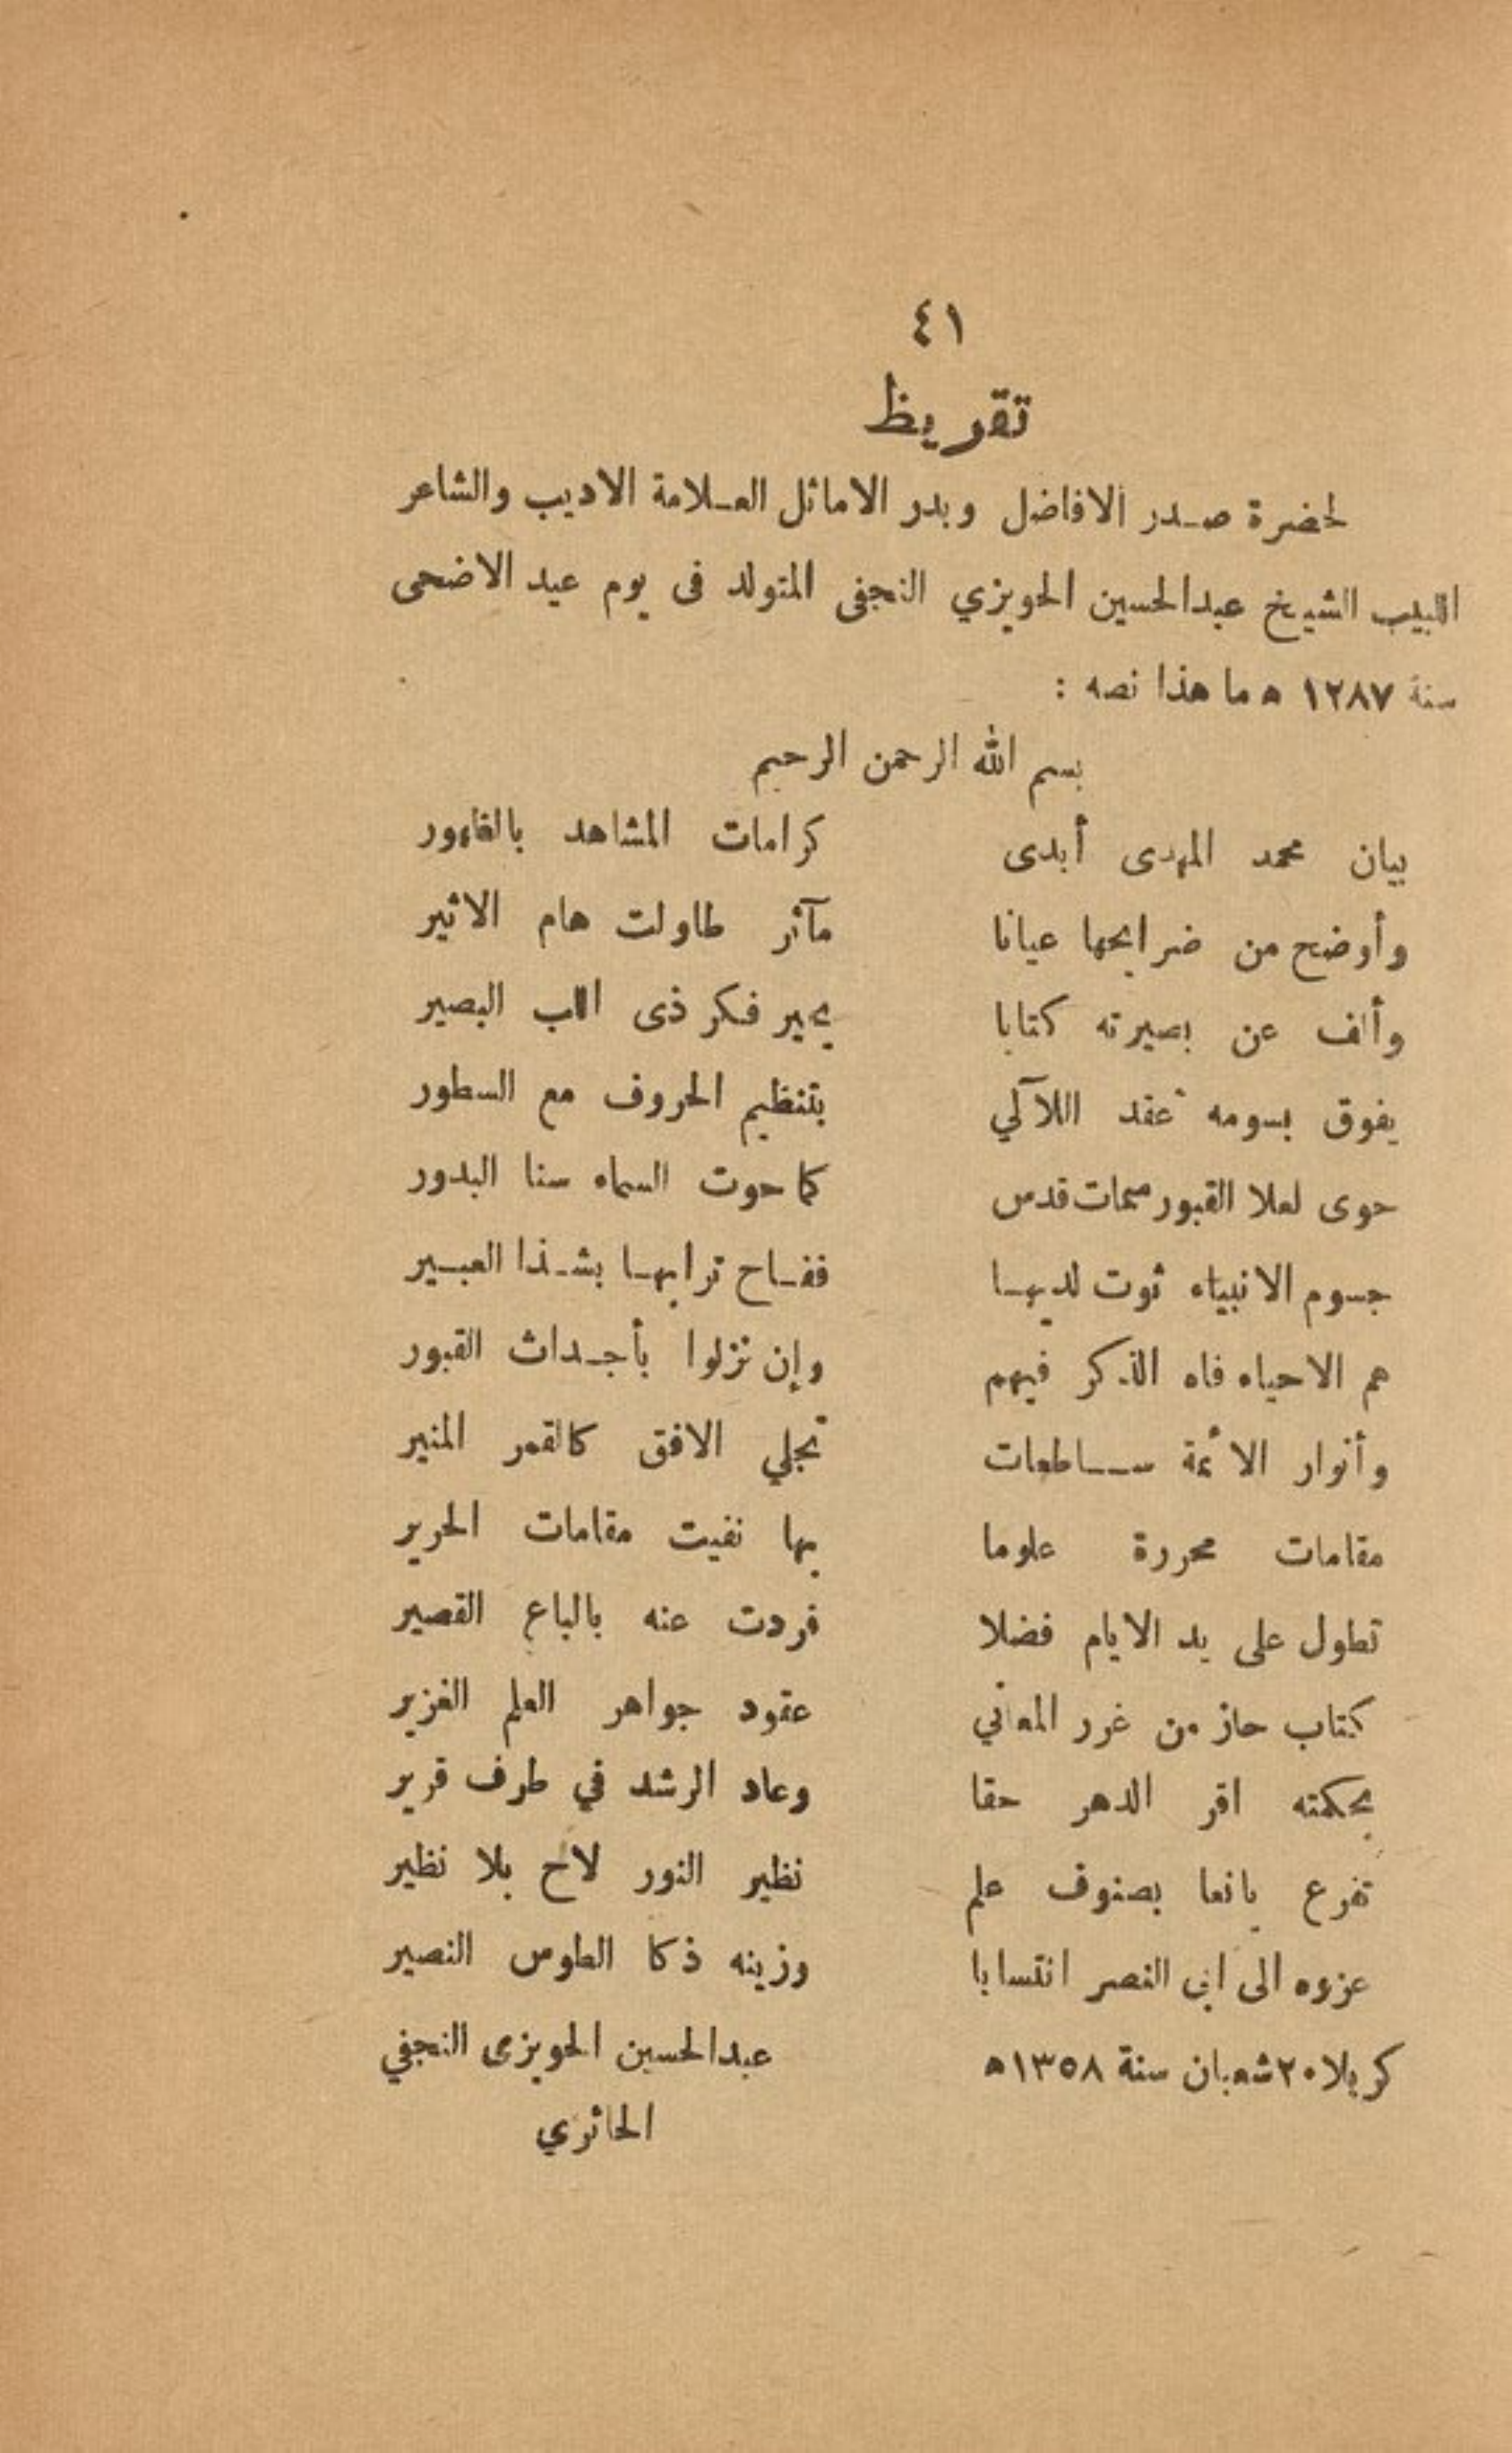 ٤١
تقريظ
لحضرة صدر الافاضل وبدر الاماثل العلامة الاديب والشاعر
اللبيب الشيخ عبدالحسين الحويزي النجفى المتولد فى يوم عيد الاضحى
سنة ١٢٨٧ ه ما هذا نصه :
بسم الله الرحمن الرحيم
بيان محمد المهدى أبدى كرامات المشاهد بالظهور
وأوضح من ضرايحها عيانا مآثر طاولت هام الاثير
وألف عن بصيرته كتابا يحير فكر ذى اللب البصير
يفوق بسومه عقد اللآلي بتنظيم الحروف مع السطور
حوى لعلا القبور سمات قدس كما حوت السماء سنا البدور
جسوم الانبياء ثوت لديها ففاح ترابها بشذا العبير
هم الاحياء فاه الذكر فيهم وإن نزلوا بأجداث القبور
وأنوار الأئمة ساطعات تجلي الافق كالقمر المنير
مقامات محررة علوما بها نفيت مقامات الحرير
تطول على يد الايام فضلا فردت عنه بالباع القصير
كتاب حاز من غرر المعاني عقود جواهر العلم الغزير
بحكمته اقر الدهر حقا وعاد الرشد في طرف قرير
تفرع يانعا بصنوف علم نظير النور لاح بلا نظير
عزوه الى ابى النصر انتسابا وزينه ذكا الطوس النصير
كربلا ٢٠ شعبان سنة ١٣٥٨ه عبدالحسين الحويزى النجفي
الحائري